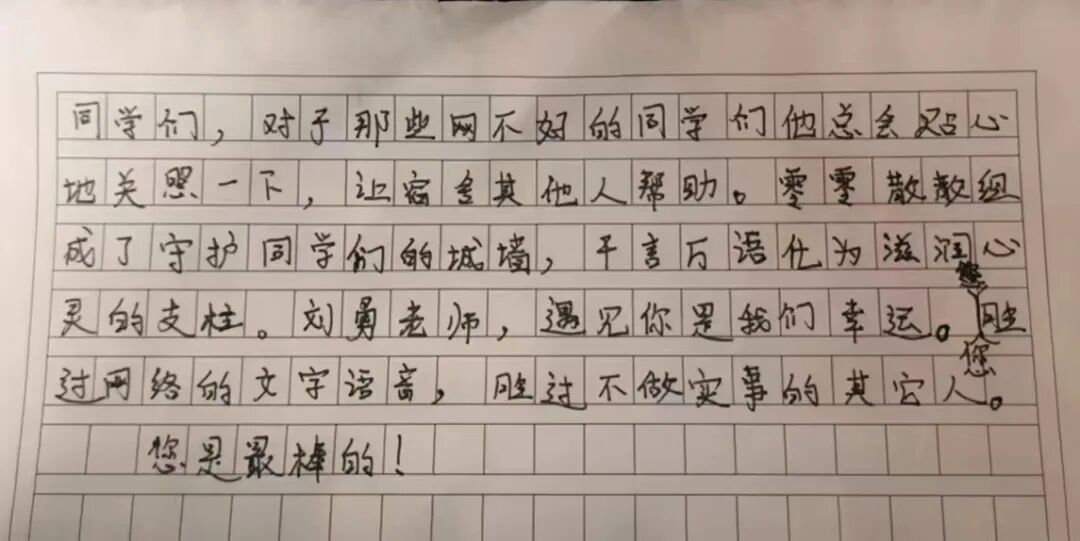 同学们，对于那些网不好的同学们他总会贴心
地关照一下，让宿舍其他人帮助。零零散散组
成了守护同学们的城墙，千言万语化为滋润心
灵的支柱。刘勇老师，遇见你是我们幸运。您胜
过网络的文字语音，胜过不做实事的其它人。
您是最棒的！